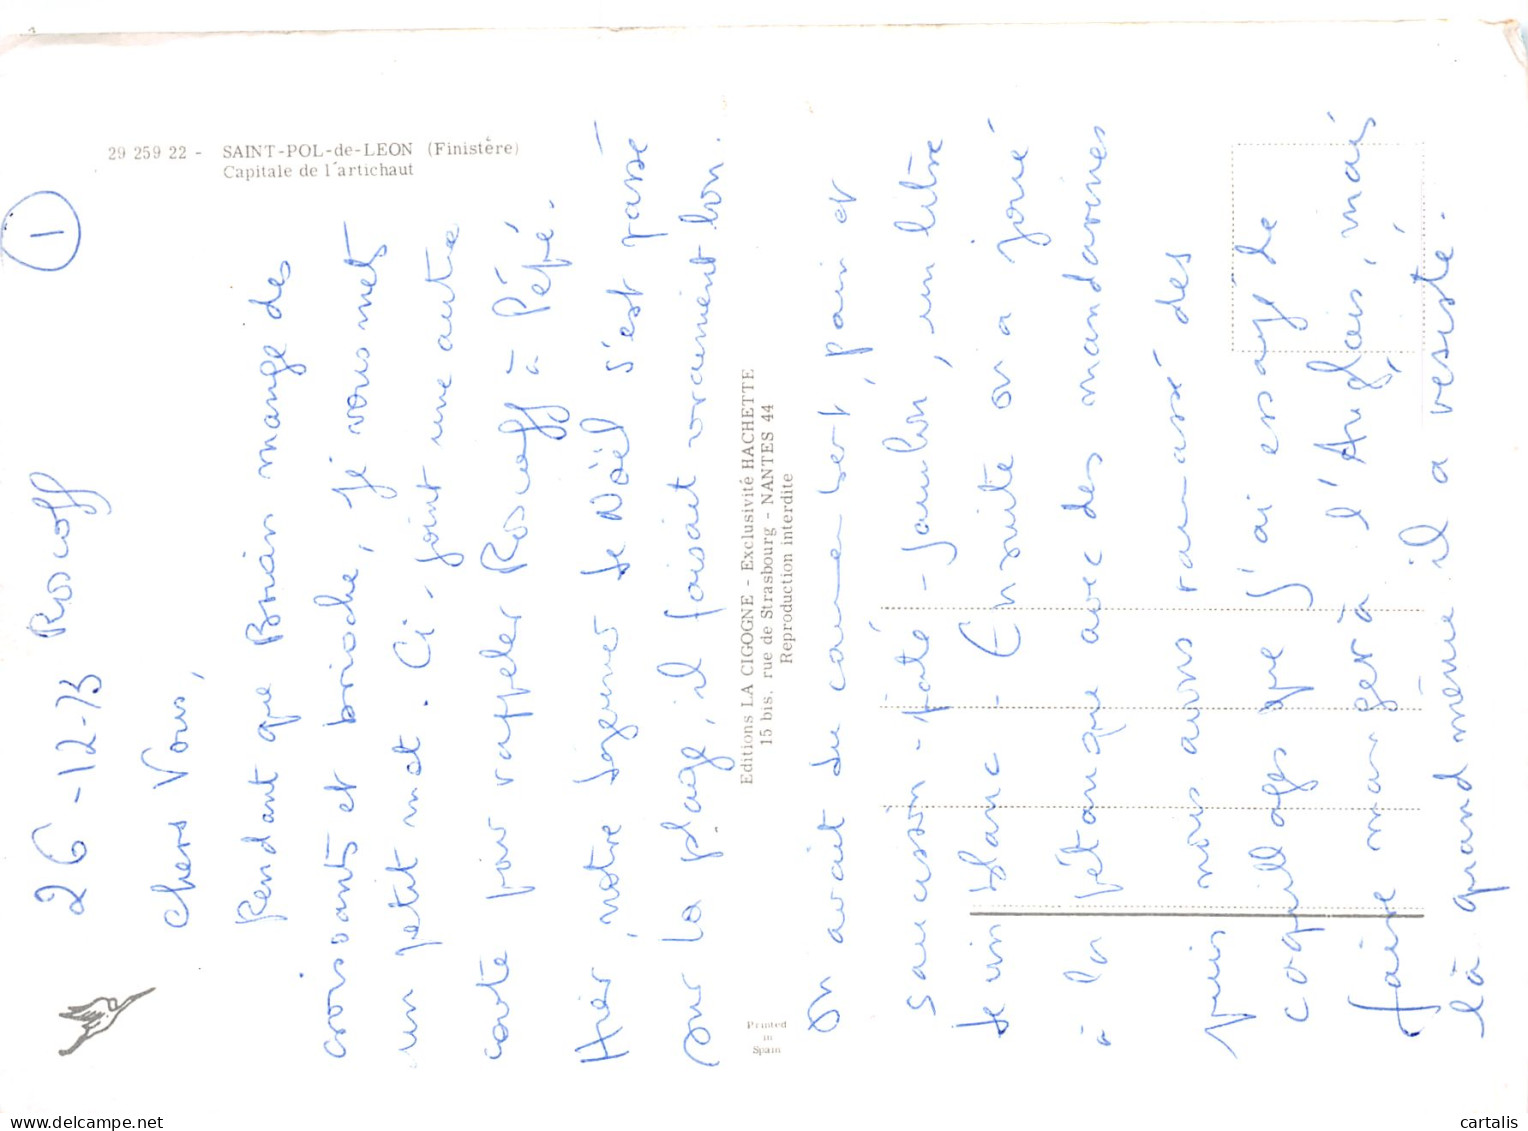 29 259 22 - SAINT-POL-de-LEON (Finistère)
Capitale de l'artichaut
1
26-12-73 Roscoff
Chers Vous,
Pendant que Brian mange des
croissants et brioche, je vous mets
un petit mot. Ci-joint une autre
carte pour rappeler Roscoff à Pépé.
Hier, notre Noël s'est passé
sur la plage, il faisait vraiment bon.
Editions LA CIGOGNE - Exclusivité HACHETTE
15 bis. rue de Strasbourg - NANTES 44
Reproduction interdite
Printed
in
Spain
On avait du camembert, pain et
saucisson - pâté - jambon, un litre
de vin blanc - Ensuite on a joué
à la pétanque avec des mandarines
puis nous avons ramassé des
coquillages que j'ai essayé de
faire manger à l'Anglais, mais
là quand même il a résisté.
cartalis
delcampe.net